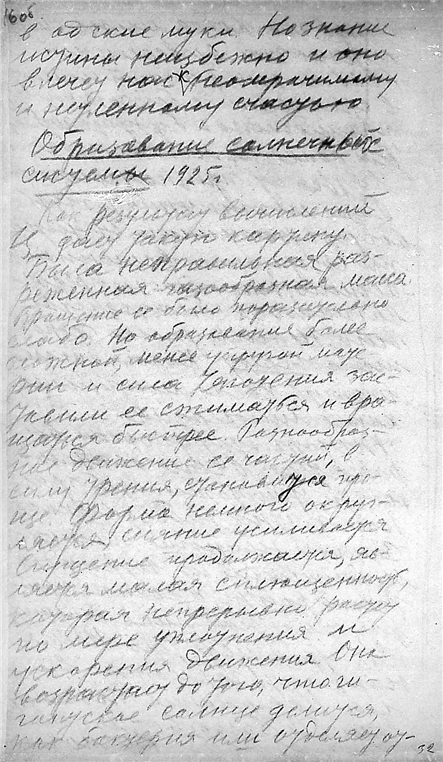 60б
в адские муки. Но знание
истины неизбежно и оно
влечет нас к неомрачимому
и нетленному счастью
Образование солнечных
системы 1925 г.
Как результат вычислений
даю такую картину
Была неправильная раз-
реженная газообразная масса
Вращение ее было поразительно
слабо. Но образование более
сложной, менее упругой мате
рии и сила тяготения зас-
тавили ее сжиматься и вра-
щаться быстрее. Разнообраз-
ные движение ее частей, в
силу трения, становится про-
ще. Форма немного округ-
ляется, сияние усиливается
Сгущение продолжается, яв-
ляется малая сплющенность,
которая непрерывно растет
по мере уплотнения и
ускорения движения Она
возрастает до того, что ги-
гантское солнце делится,
как бактерия или отделяет от-
32